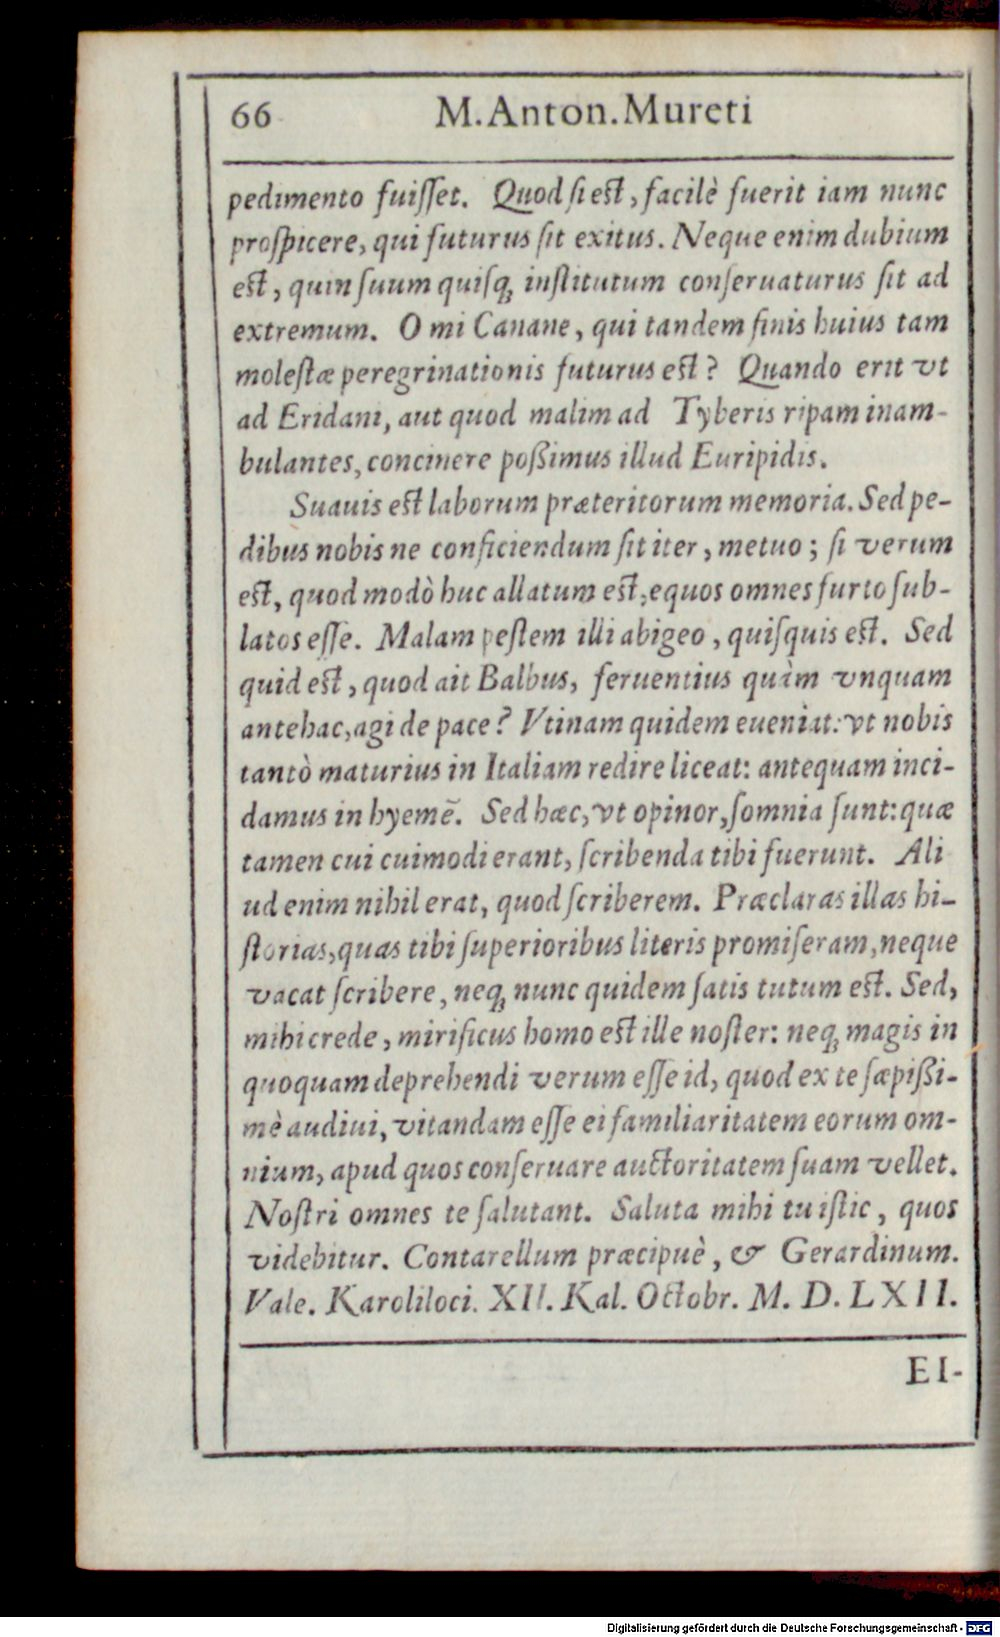 66 M. Anton. Mureti
pedimento fuiſſet. Quod ſi eſt, facilè fuerit iam nunc
proſpicere, qui futurus ſit exitus. Neque enim dubium
eſt, quin ſuum quiſq; inſtitutum conſeruaturus ſit ad
extremum. O mi Canane, qui tandem finis huius tam
moleſtæ peregrinationis futurus eſt? Quando erit vt
ad Eridani, aut quod malim ad Tyberis ripam inam-
bulantes, concinere poßimus illud Euripidis.
Suauis eſt laborum præteritorum memoria. Sed pe-
dibus nobis ne conficiendum ſit iter, metuo; ſi verum
eſt, quod modò huc allatum eſt, equos omnes furto ſub-
latos eſſe. Malam peſtem illi abigeo, quiſquis eſt. Sed
quid eſt, quod ait Balbus, feruentius quàm vnquam
antehac, agi de pace? Vtinam quidem eueniat: vt nobis
tantò maturius in Italiam redire liceat: antequam inci-
damus in hyemē. Sed hæc, vt opinor, ſomnia ſunt: quæ
tamen cui cuimodi erant, ſcribenda tibi fuerunt. Ali
ud enim nihil erat, quod ſcriberem. Præclaras illas hi-
ſtorias, quas tibi ſuperioribus literis promiſeram, neque
vacat ſcribere, neq; nunc quidem ſatis tutum eſt. Sed,
mihi crede, mirificus homo eſt ille noſter: neq; magis in
quoquam deprehendi verum eſſe id, quod ex te ſæpißi-
mè audiui, vitandam eſſe ei familiaritatem eorum om-
nium, apud quos conſeruare auctoritatem ſuam vellet.
Noſtri omnes te ſalutant. Saluta mihi tu iſtic, quos
videbitur. Contarellum præcipuè, & Gerardinum.
Vale. Karoliloci. XII. Kal. Octobr. M. D. LXII.
EI-
Digitalisierung gefördert durch die Deutsche Forschungsgemeinschaft - DFG